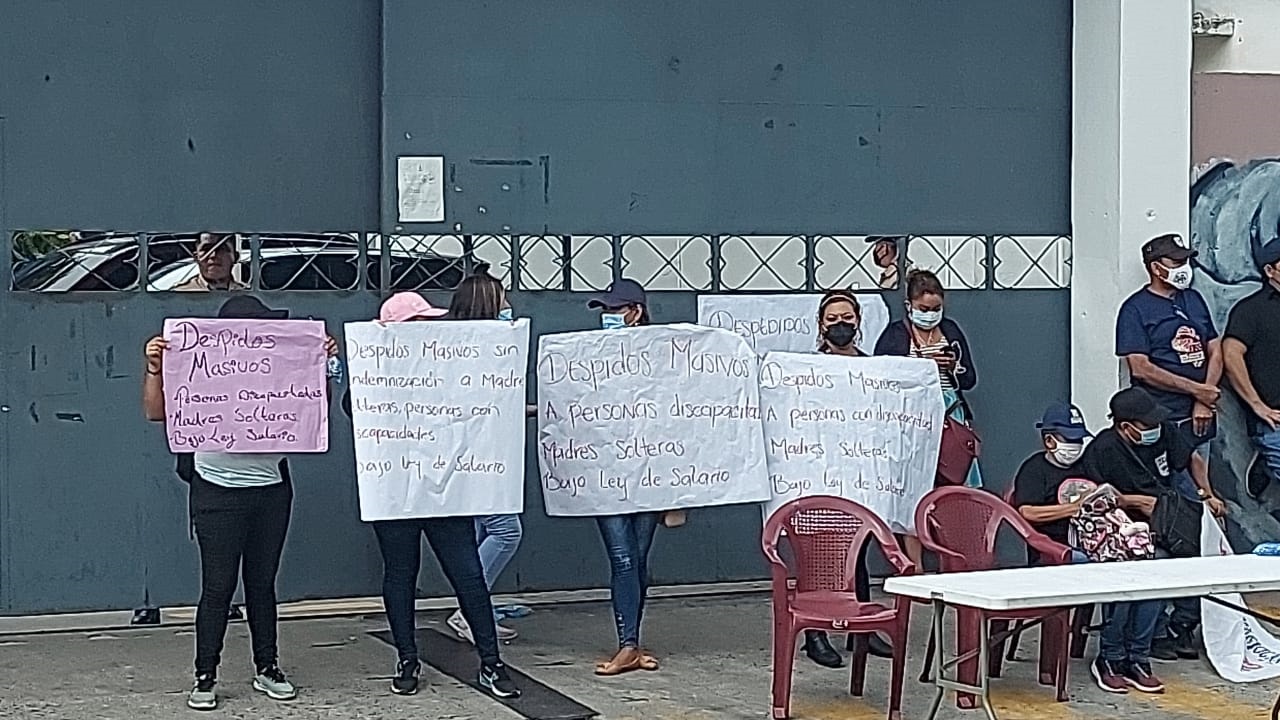 Despidos
Masivos
Personas Discapacitadas
Madres Solteras
Bajo Ley Salario
Despidos Masivos sin
ndemnización a Madre
lteras, personas con
scapacidades
bajo Ley de Salario
Despidos Masivos
A personas discapacita
Madres Solteras
Bajo Ley de Salario
Despedidos
Despidos Masivos
A personas con discapacidad
Madres Solteras
Bajo Ley de Salar